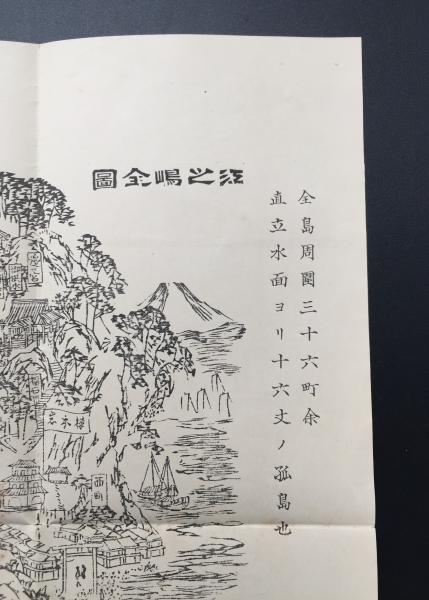 江之嶋全圖
全島周圍三十六町余
直立水面ヨリ十六丈ノ孤島也
岩本樓